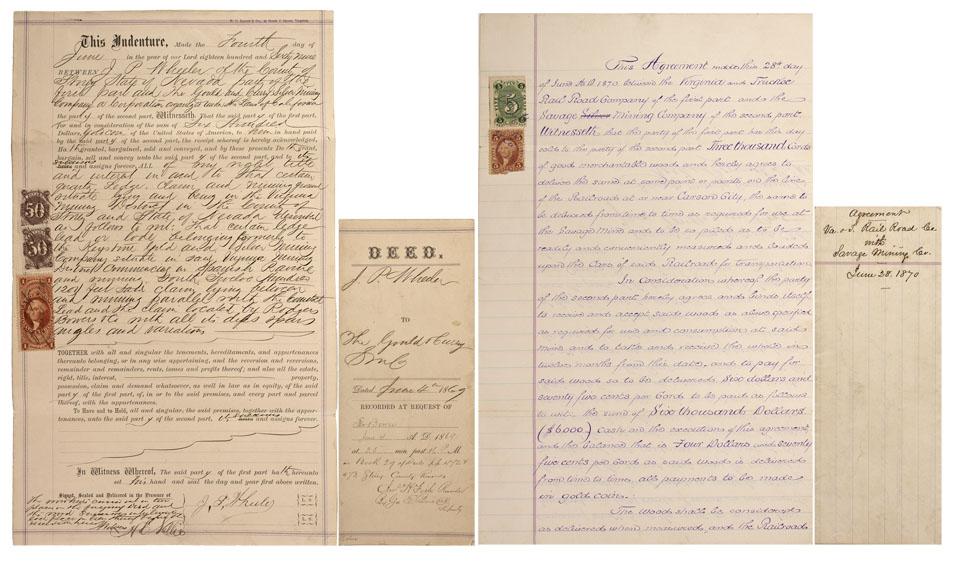 This Indenture, Made the Fourth day of
June in the year of our Lord eighteen hundred and Sixty Nine
BETWEEN J. P. Wheeler of the County of
Storey State of Nevada party of the
first part and The Gould and Curry Silver Mining
Company a Corporation organized under the Laws of California
the party of the second part, Witnesseth, That the said party of the first part,
for and in consideration of the sum of Six Hundred
Dollars, gold coin of the United States of America, to him in hand paid
by the said party of the second part, the receipt whereof is hereby acknowledged,
Hath granted, bargained, sold and conveyed, and by these presents Doth grant,
bargain, sell and convey unto the said party of the second part, and to its
and assigns forever, ALL of my right title
and interest in and to that certain
quartz Ledge, Claim and mining ground
situate lying and being in the Virginia
Mining District in the County of
Storey and State of Nevada
as follows to wit: That certain ledge
lead or lode belonging formerly to
the Keystone Gold and Silver Mining
Company situate in said Virginia Mining
District Commencing in Spanish Ravine
and running South Twelve Hundred
1200 feet said claim lying between
and running parallel with the Comstock
Lead and the claim located by Rodgers
Bowers &c with all its dips spurs
angles and variations
TOGETHER with all and singular the tenements, hereditaments, and appurtenances
thereunto belonging, or in any wise appertaining, and the reversion and reversions,
remainder and remainders, rents, issues and profits thereof; and also all the estate,
right, title, interest, property,
possession, claim and demand whatsoever, as well in law as in equity, of the said
party of the first part, of, in or to the said premises, and every part and parcel
thereof, with the appurtenances.
To Have and to Hold, all and singular, the said premises, together with the appurtenances, unto the said party of the second part, its and assigns forever.
In Witness Whereof, The said party of the first part hath hereunto
set his hand and seal the day and year first above written.
Signed, Sealed and Delivered in the Presence of
J. P. Wheeler
50
50
DEED.
J. P. Wheeler
TO
The Gould & Curry
S M C
Dated June 4th 1869
RECORDED AT REQUEST OF
June A. D. 1869
at min past M
5
This Agreement made this 28th day
of June A.D. 1870 between the Virginia and Truckee
Rail Road Company of the first part and the
Savage Silver Mining Company of the second part
Witnesseth that the party of the first part has this day
sold to the party of the second part Three thousand Cords
of good merchantable wood and hereby agrees to
deliver the same at some point or points, on the line
of the Railroad at or near Carson City, the same to
be delivered from time to time as required for use at
the Savage Mine and to be so piled as to be
easily and conveniently measured and loaded
upon the Cars of said Railroad for transportation.
In Consideration whereof the party
of the second part hereby agrees and binds itself
to receive and accept said wood as above specified
as required for use and consumption at said
mine and to take and receive the whole in
twelve months from this date, and to pay for
said wood so to be delivered, Six dollars and
seventy five cents per Cord to be paid as follows
to wit: the sum of Six thousand Dollars
($6000) cash on the execution of this agreement
and the balance that is Four Dollars and seventy
five cents per Cord as said wood is delivered
from time to time, all payments to be made
in gold coin.
The wood shall be considered
as delivered when measured, and the Railroad
Agreement
Va. & T. Rail Road Co
with
Savage Mining Co.
June 28. 1870